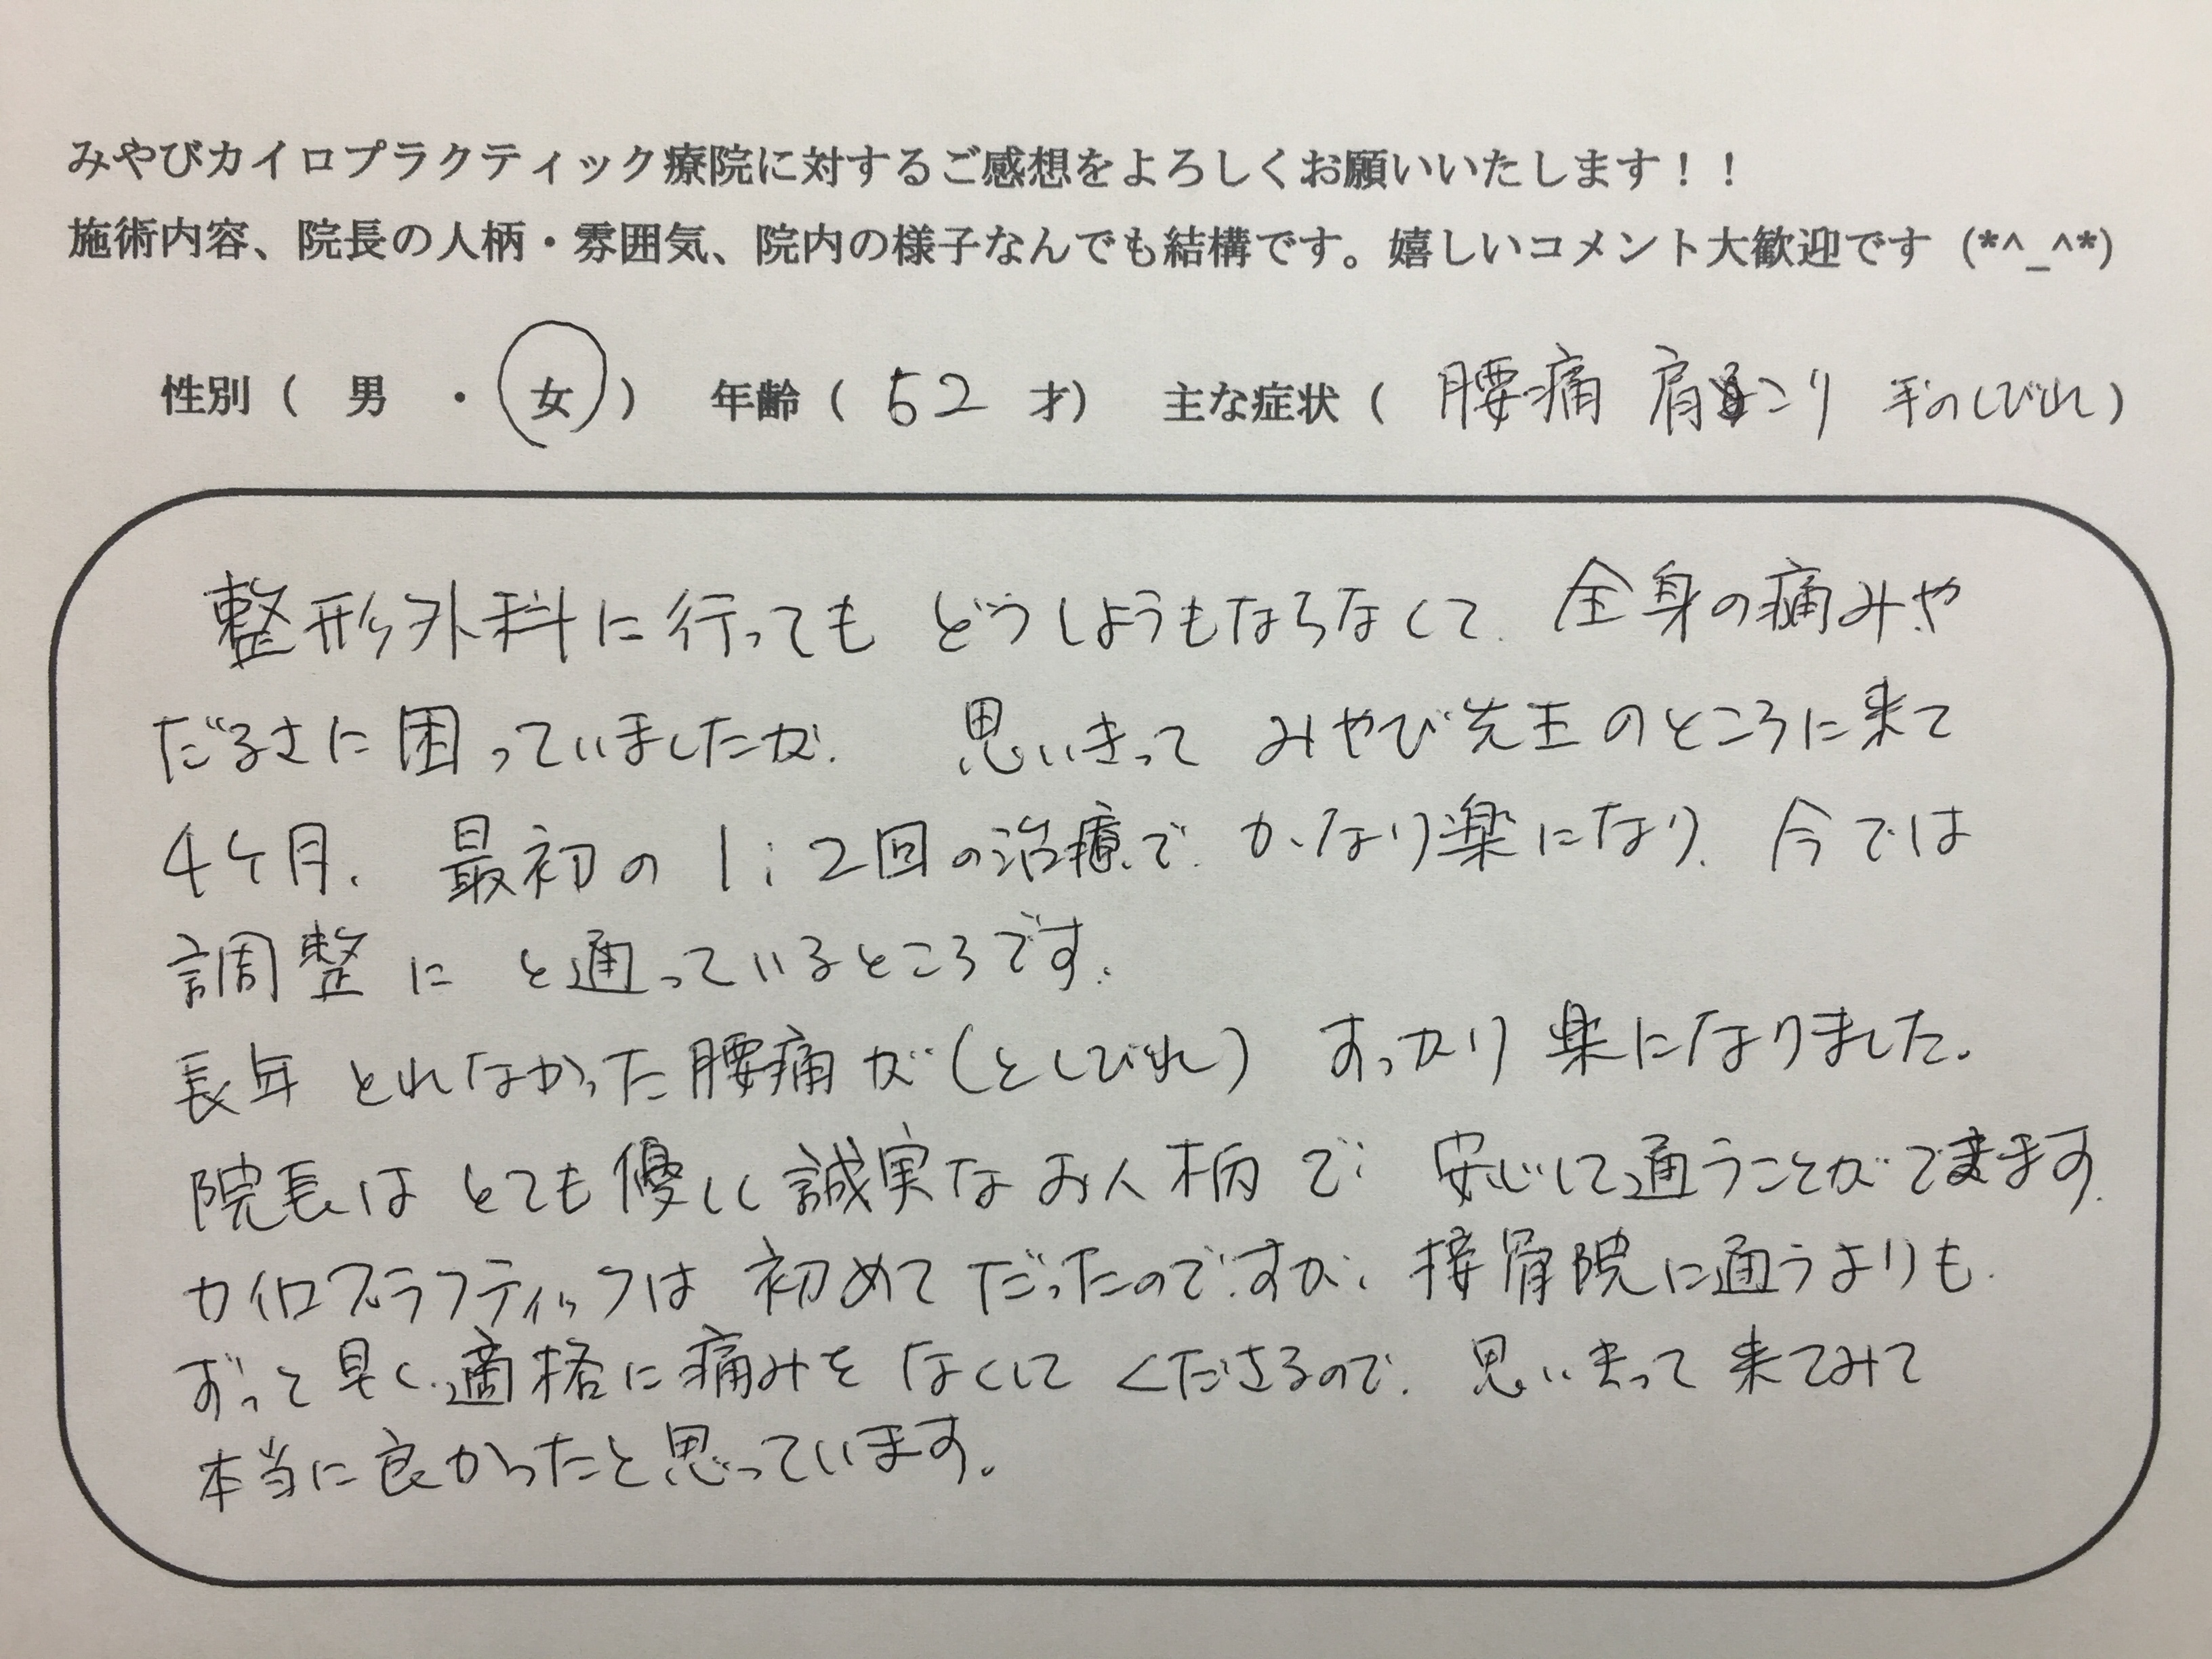 みやびカイロプラクティック療院に対するご感想をよろしくお願いいたします！！
施術内容、院長の人柄・雰囲気、院内の様子なんでも結構です。嬉しいコメント大歓迎です (*^_^*)
性別（ 男 ・ 女 ） 年齢（ 52 才） 主な症状（ 腰痛 肩こり 手のしびれ ）
整形外科に行っても どうしようもならなくて、全身の痛みや
だるさに困っていましたが、 思いきって みやび先生のところに来て
4ヶ月、 最初の 1、2回の治療で、かなり楽になり、今では
調整に と通っているところです。
長年 とれなかった腰痛が（としびれ） すっかり 楽になりました。
院長は とても優しく誠実なお人柄で、 安心して通うことができます。
カイロプラクティックは 初めて だったのですが、 接骨院に通うよりも、
ずっと早く、適格に痛みを なくして くださるので、 思いきって 来てみて
本当に良かったと思っています。